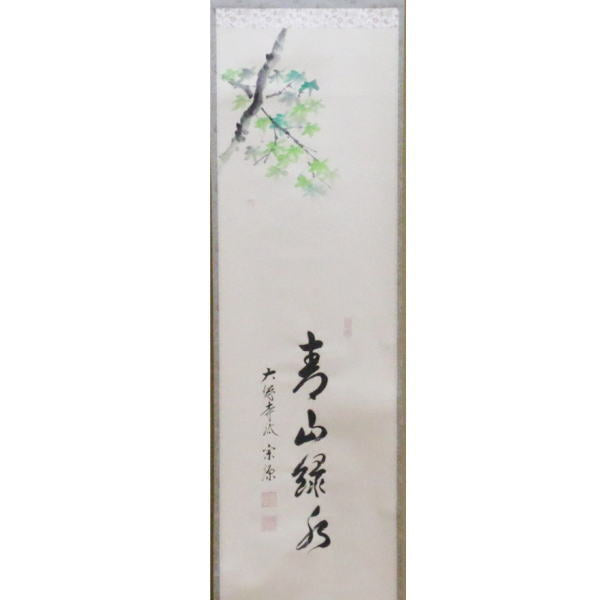 青山緑水
大徳寺派 宗源